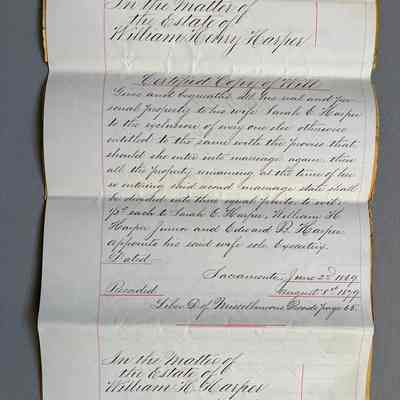 In the Matter of
the Estate of
William Henry Harper
Certified Copy of Will
Gives and bequeaths all the real and per
sonal Property to his wife Sarah E Harper
to the exclusion of every one else otherwise
entitled to the same with the proviso that
should she enter into marriage again then
all the Property remaining at the time of her
so entering said second marriage state shall
be divided into three equal parts to wit:
⅓rd each to Sarah E. Harper, William H
Harper Junior and Edward R. Harper
appoints his said wife sole Executrix.
Dated
Sacramento, June 22d 1869
Recorded August 8th 1879
Liber D. of Miscellaneous Deeds page 65.
In the Matter of
the Estate of
William H. Harper